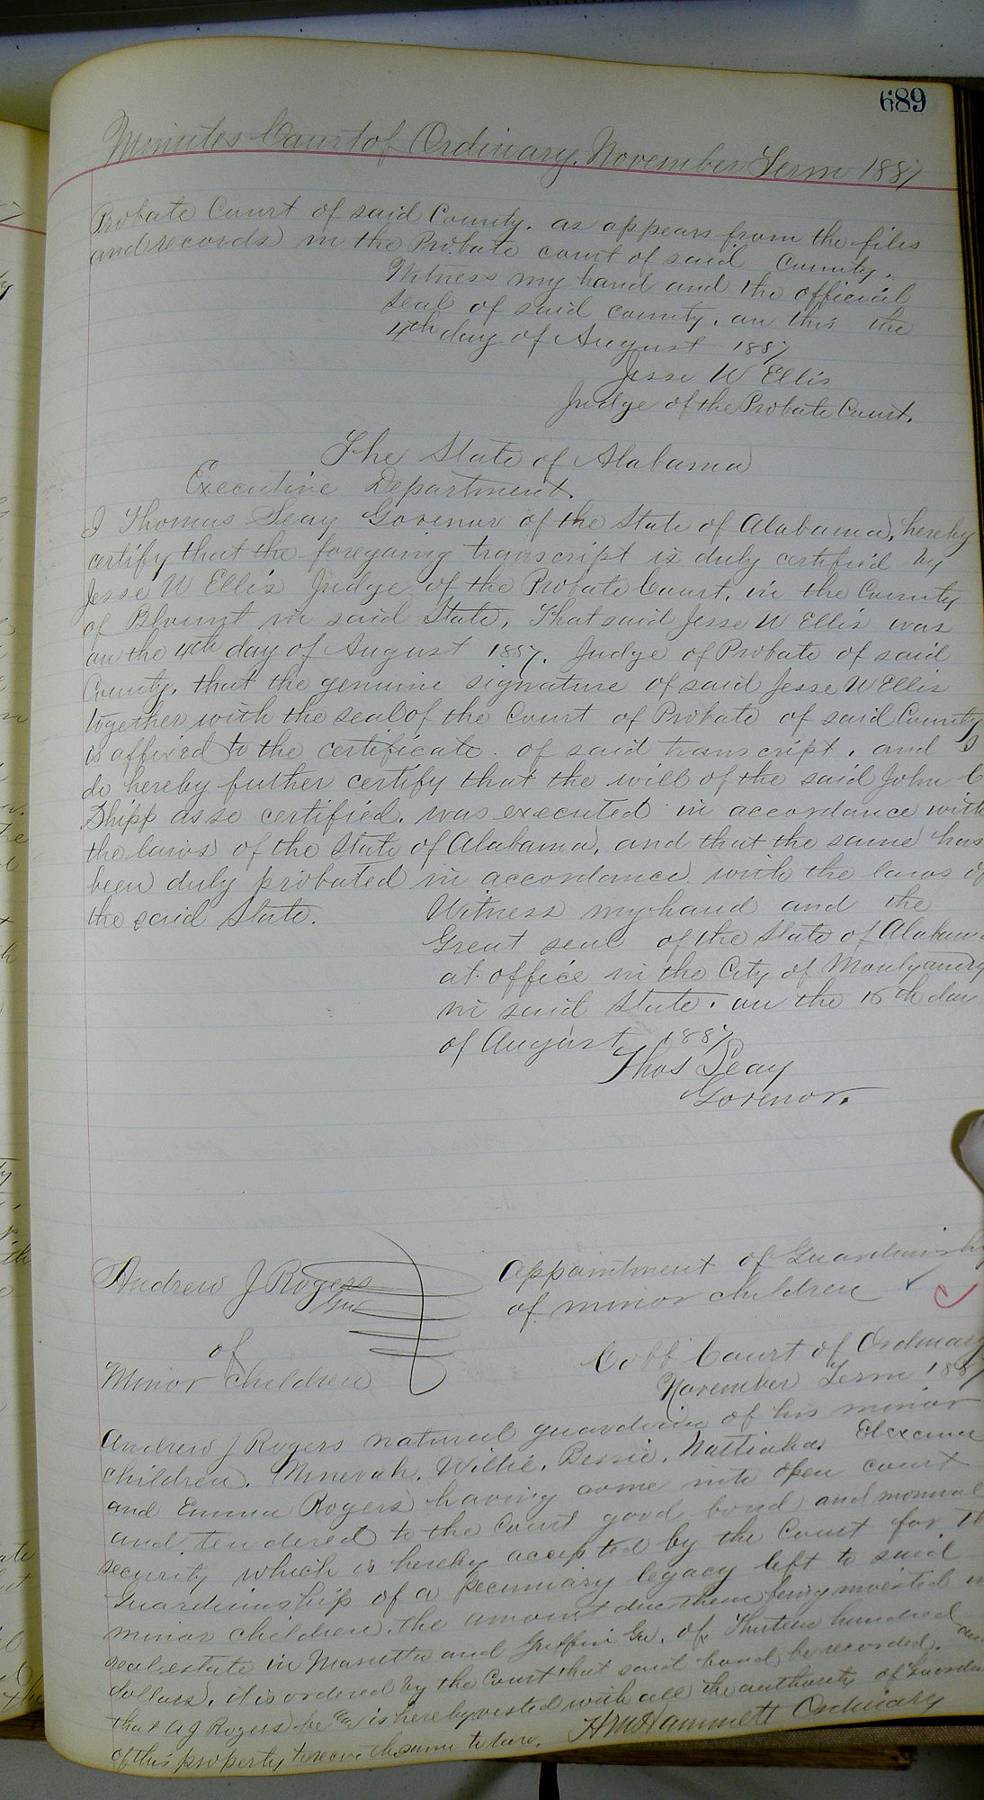 689
Minutes Court of Ordinary, November Term 1887
Probate Court of said County, as appears from the files
and records in the Probate court of said County.
Witness my hand and the official
seal of said county, on this the
4th day of August 1887
Jesse W Ellis
Judge of the Probate Court.
The State of Alabama
Executive Department.
I Thomas Seay Govenor of the State of Alabama, hereby
certify that the foregoing transcript is duly certified by
Jesse W Ellis Judge of the Probate Court, in the County
of Blount in said State, That said Jesse W Ellis was
on the 4th day of August 1887, Judge of Probate of said
County, that the genuine signature of said Jesse W Ellis
together with the seal of the Court of Probate of said County
is affixed to the certificate of said transcript, and I
do hereby futher certify that the will of the said John C
Shipp as so certified, was executed in accordance with
the laws of the State of Alabama, and that the same has
been duly probated in accordance with the laws of
the said State.
Witness my hand and the
Great seal of the State of Alabama
at office in the City of Montgomery
in said State, on the 16th day
of August 1887
Thos Seay
Govenor.
Andrew J Rogers
Gur
of
Minor Children
Appointment of Guardianship
of minor children
Cobb Court of Ordinary
November Term 1887
Andrew J Rogers natural guardian of his minor
children, Minervah, Willie, Bessie,
and Emma Rogers having come into open court
and tendered to the Court good bond and
security which is hereby accepted by the Court for the
Guardianship of a pecuniary legacy left to said
minor children, the amount due them being invested in
real estate in Marietta and Griffin Ga, of Thirteen hundred
dollars, it is ordered by the Court that said bond be recorded, and
that A J Rogers be & is hereby vested with all the authority of Guardian
of this property to receive the same
H M Hammett Ordinary